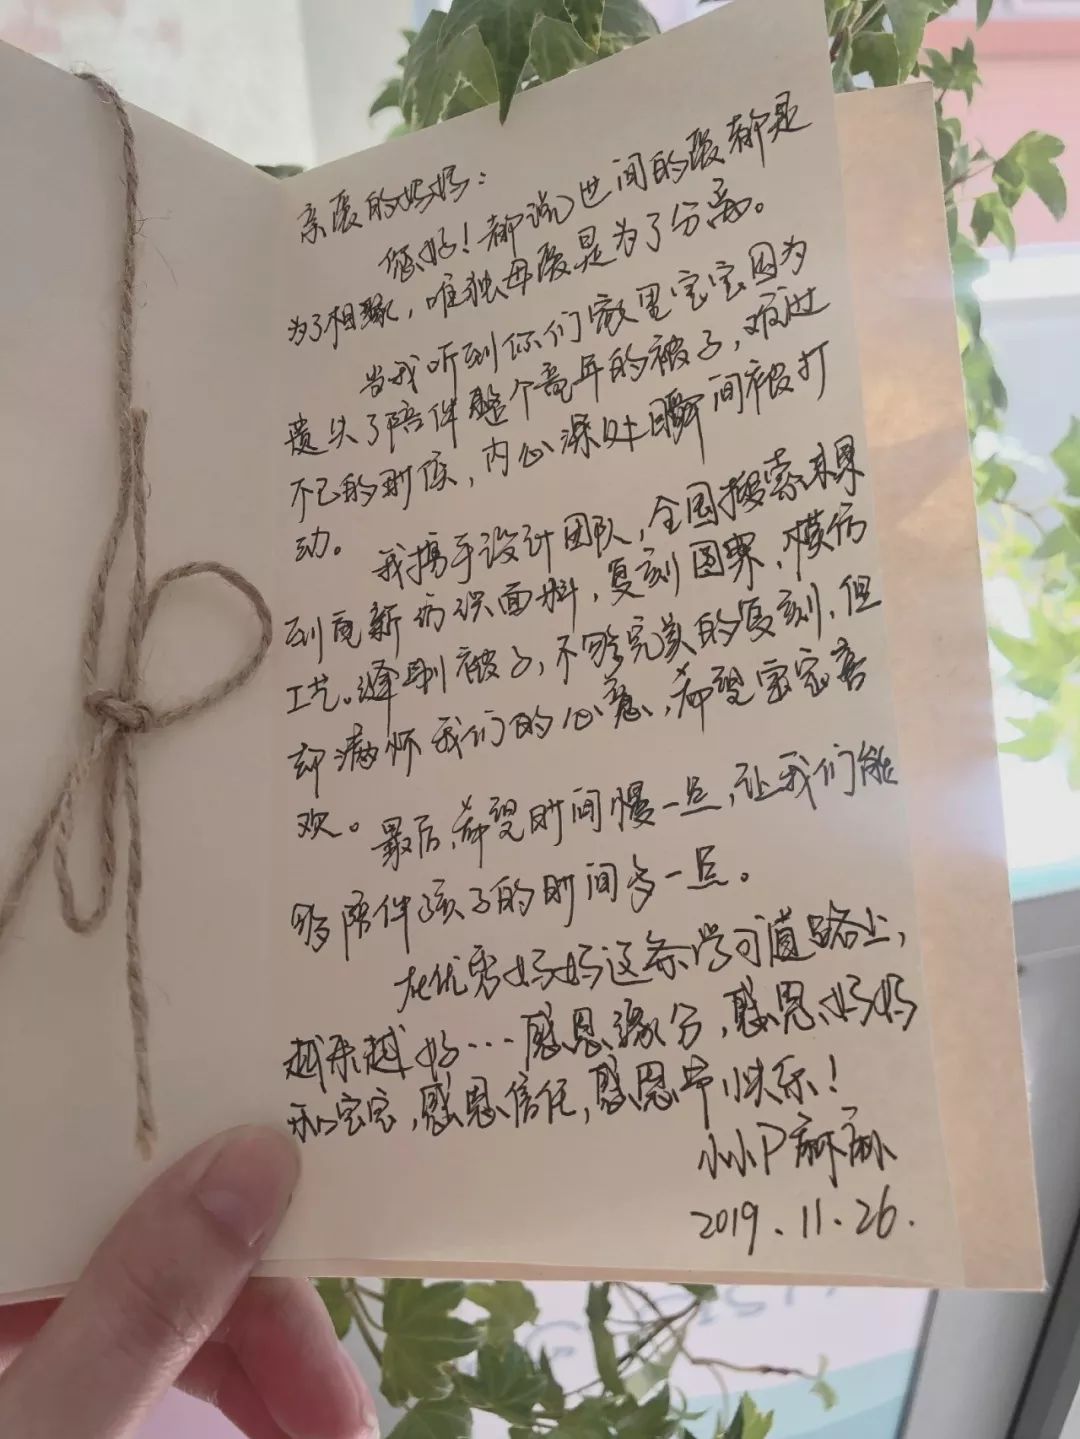 亲爱的妈妈：
您好！都说世间的爱都是
为了相聚，唯独母爱是为了分离。
当我听到你们家里宝宝因为
遗失了陪伴整个童年的被子，难过
不已的时候，内心深处瞬间被打
动。
我携手设计团队，全国搜索采集
到更新的误面料，复刻图案，模仿
工艺。缝制被子，不够完美的复刻，但
却满怀我们的心意，希望宝宝喜
欢。
最后，希望时间慢一点，让我们能
够陪伴孩子的时间多一点。
在优秀妈妈这条学习道路上，
越来越好…感恩缘分，感恩妈妈
和宝宝，感恩信任，感恩节快乐！
小小P麻麻
2019.11.26.